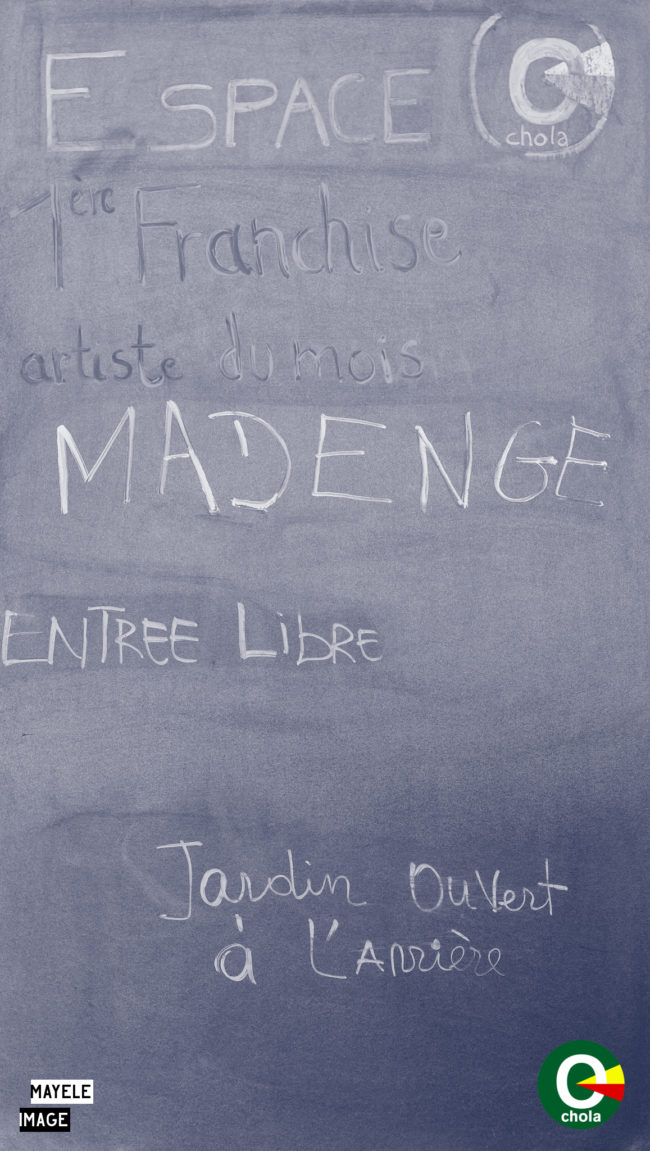 ESPACE
chola
1ère Franchise
artiste du mois
MADENGE
ENTREE LIbRE
Jardin OuVert
à L'ARRière
MAYELE
IMAGE
chola